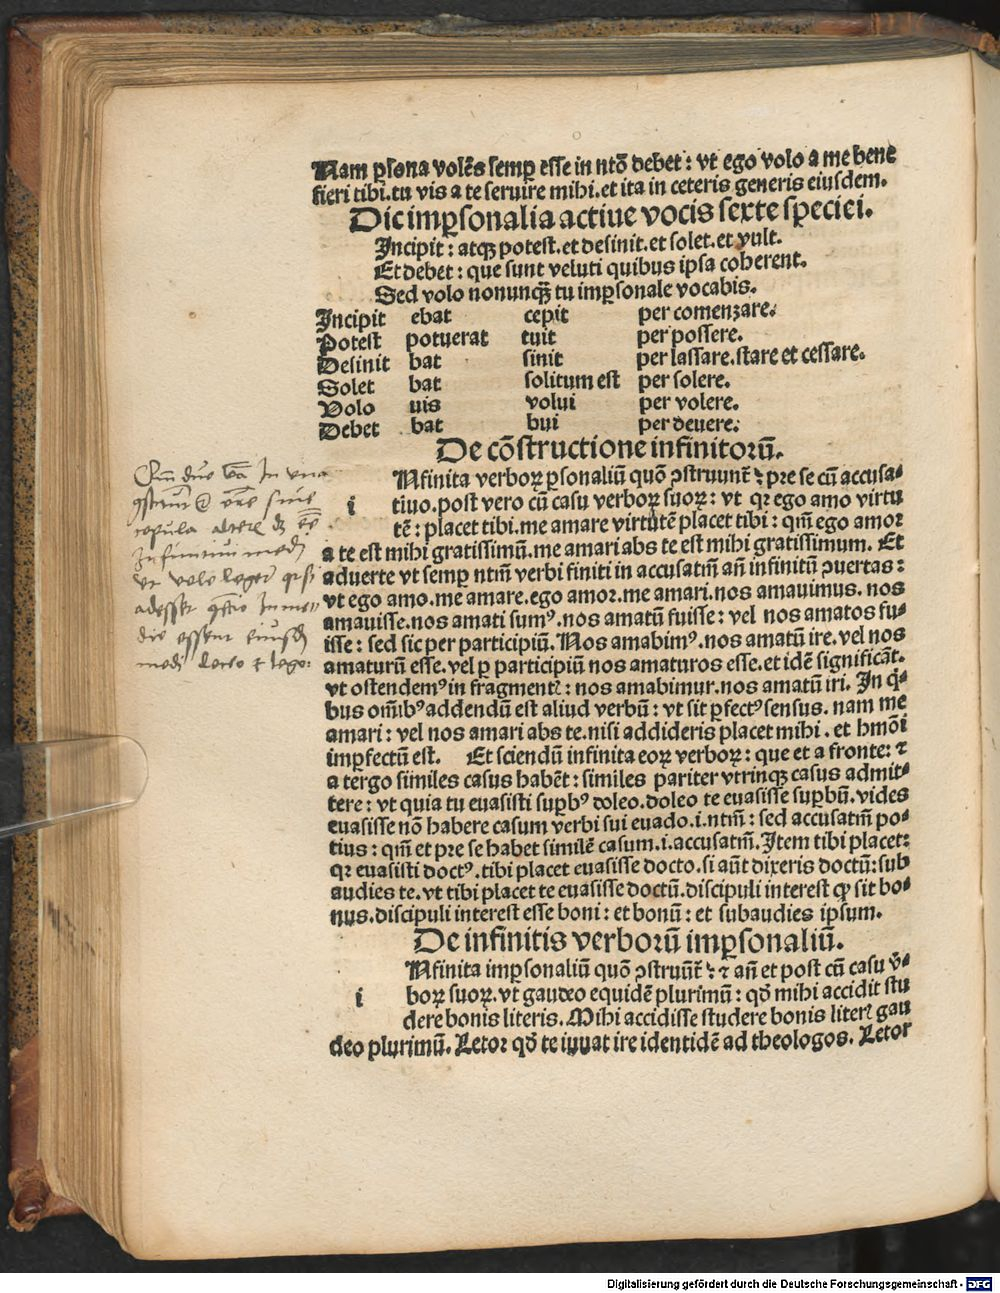 Nam ꝑsona volẽs semꝑ esse in ntõ debet : vt ego volo a me bene
fieri tibi. tu vis a te seruire mihi. et ita in ceteris generis eiusdem.
Dic imꝑsonalia actiue vocis sexte speciei.
Incipit : atqꝫ potest. et desinit. et solet. et vult.
Et debet : que sunt veluti quibus ipsa coherent.
Sed volo nonunqꝫ̃ tu imꝑsonale vocabis.
Incipit ebat cepit per comenzare.
Potest potuerat tuit per possere.
Desinit bat sinit per lassare. stare et cessare.
Solet bat solitum est per solere.
Volo uis volui per volere.
Debet bat bui per deuere.
De cõstructione infinitorũ.
i
Nfinita verboꝝ ꝑsonaliũ quõ ꝯstruunt̃ ⁊ pre se cũ accusa-
tiuo. post vero cũ casu verboꝝ suoꝝ : vt qꝛ ego amo virtu
tẽ : placet tibi. me amare virtutẽ placet tibi : qm̃ ego amor
a te est mihi gratissimũ. me amari abs te est mihi gratissimum. Et
aduerte vt semꝑ ntm̃ verbi finiti in accusatm̃ añ infinitũ ꝯuertas :
vt ego amo. me amare. ego amor. me amari. nos amauimus. nos
amauisse. nos amati sumꝰ. nos amatũ fuisse : vel nos amatos fu-
isse : sed sic per participiũ. Nos amabimꝰ. nos amatũ ire. vel nos
amaturũ esse. vel ꝑ participiũ nos amaturos esse. et idẽ significãt.
vt ostendemꝰ in fragmentꝭ : nos amabimur. nos amatũ iri. In q̃-
bus om̃ibꝰ addendũ est aliud verbũ : vt sit ꝑfectꝰ sensus. nam me
amari : vel nos amari abs te. nisi addideris placet mihi. et hmõi
imꝑfectũ est. Et sciendũ infinita eoꝝ verboꝝ : que et a fronte : ⁊
a tergo similes casus habẽt : similes pariter vtrinqꝫ casus admit-
tere : vt quia tu euasisti suꝑbꝰ doleo. doleo te euasisse suꝑbũ. vides
euasisse nõ habere casum verbi sui euado. i. ntm̃ : sed accusatm̃ po-
tius : qm̃ et pre se habet similẽ casum. i. accusatm̃. Item tibi placet :
qꝛ euasisti doctꝰ. tibi placet euasisse docto. si aũt dixeris doctũ : sub
audies te. vt tibi placet te euasisse doctũ. discipuli interest ꝙ sit bo-
nus. discipuli interest esse boni : et bonũ : et subaudies ipsum.
De infinitis verborũ imꝑsonaliũ.
i
Nfinita imꝑsonaliũ quõ ꝯstruũt̃ : ⁊ añ et post cũ casu ṽ-
boꝝ suoꝝ. vt gaudeo equidẽ plurimũ : qd̃ mihi accidit stu
dere bonis literis. Mihi accidisse studere bonis literꝭ gau
deo plurimũ. Letor qd̃ te iuuat ire identidẽ ad theologos. Letor
In
In
volo
modi
Digitalisierung gefördert durch die Deutsche Forschungsgemeinschaft - DFG